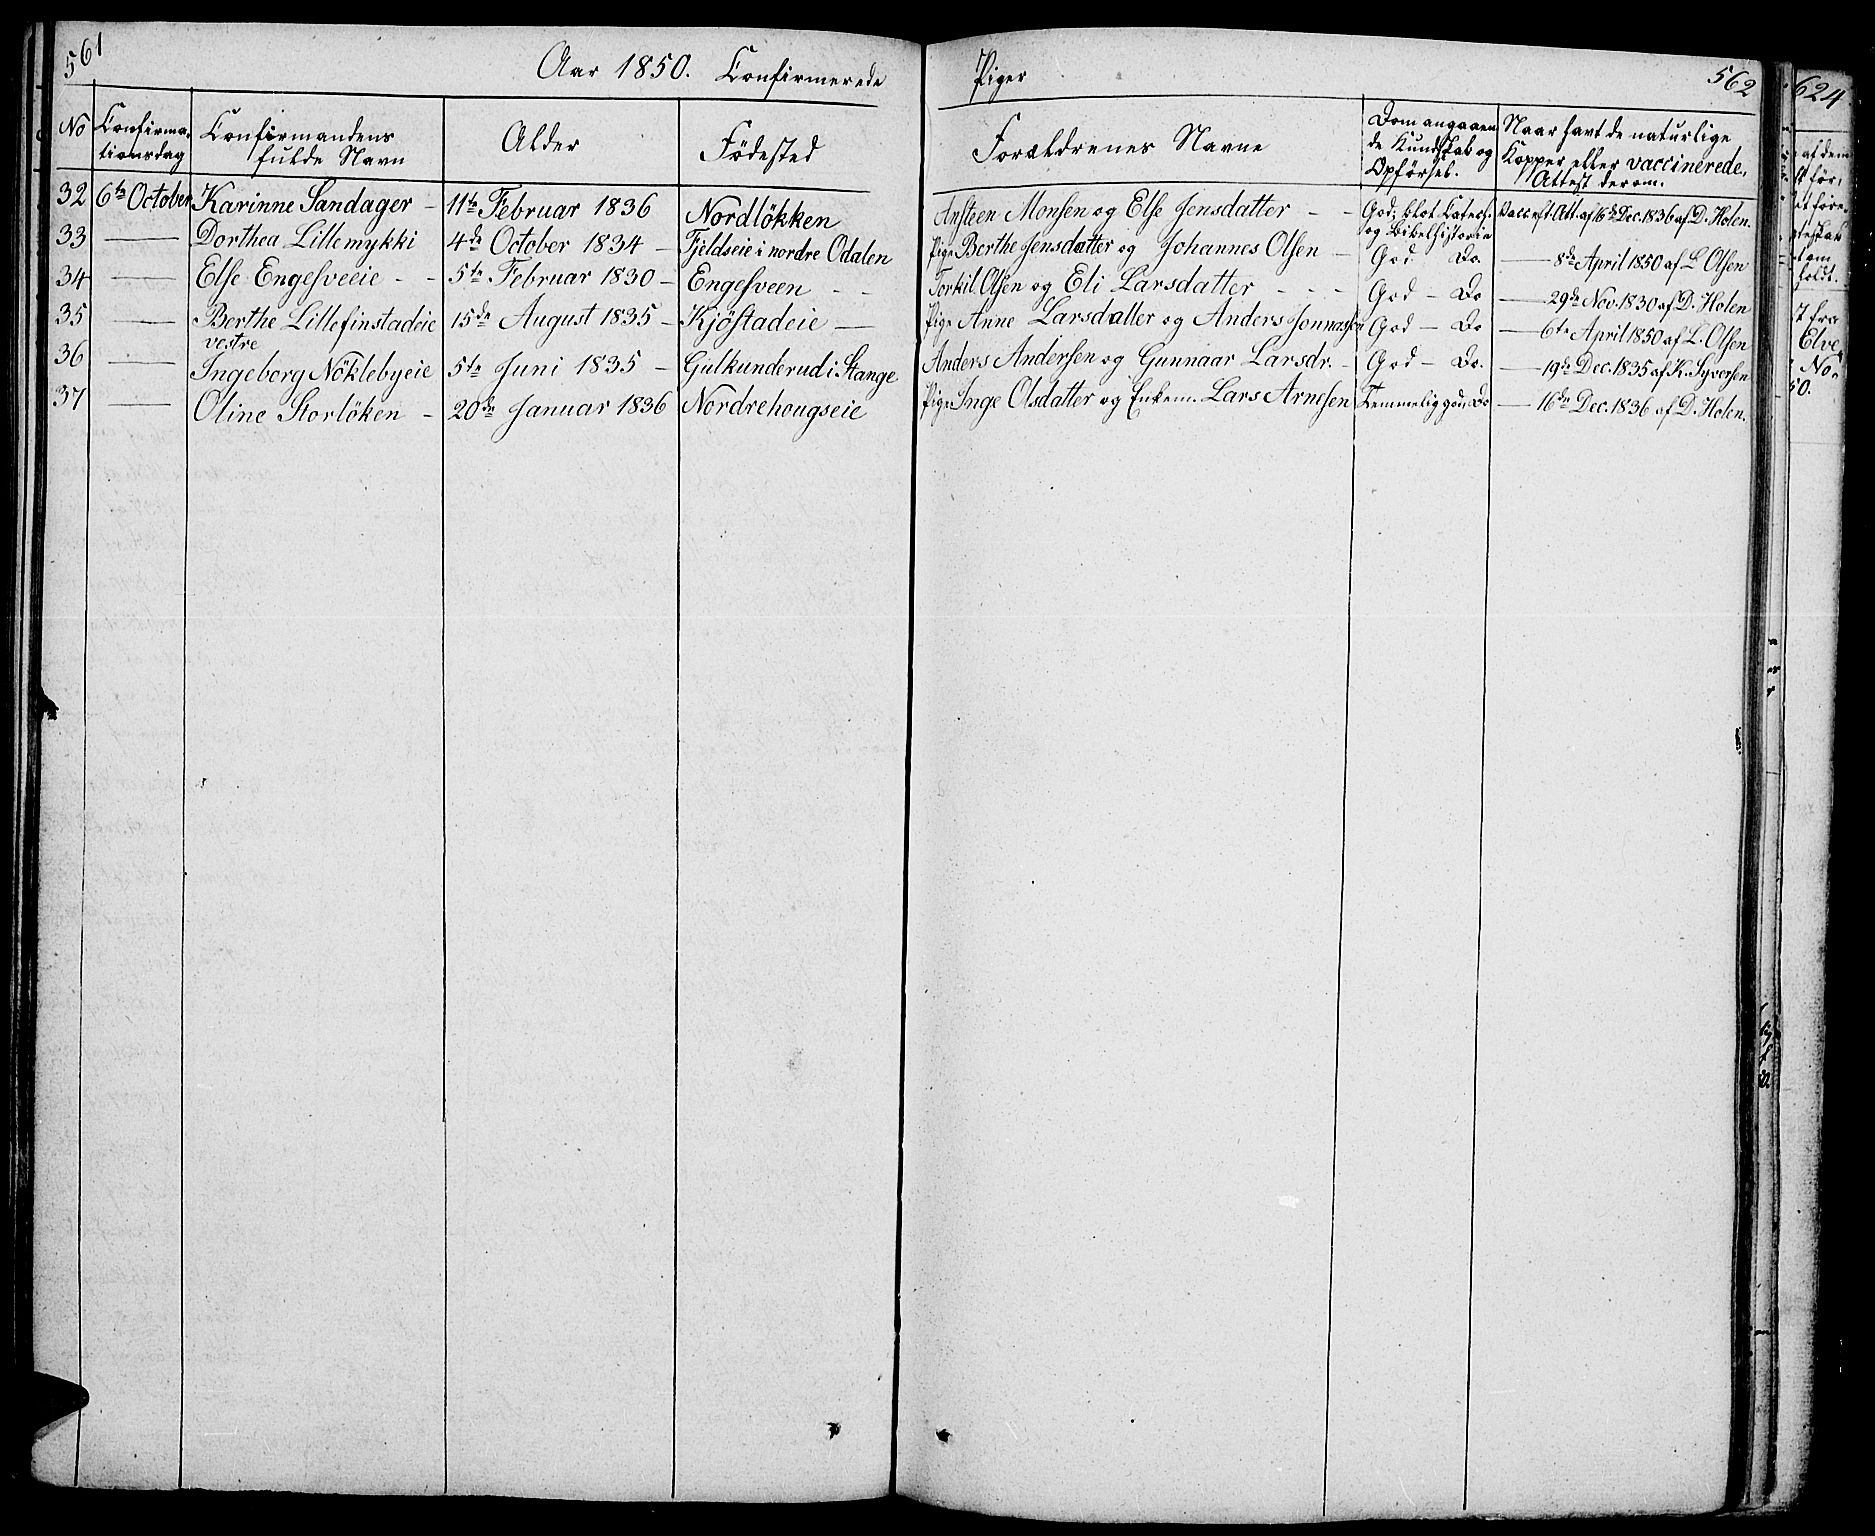 561
Aar 1850. Confirmerede Piger
562
No Confirma-tionsdag Confirmandens fulde Navn Alder Födested Forældrenes Navne Dom angaaende Kundskab og Opförsel. Naar havt de naturlige Kopper eller vaccinerede, Attest derom.
32 6te October Karinne Sandager – 11te Februar 1836 Nordlökken Ansteen Monsen og Else Jensdatter – – God; blot Catech. og Bibelhistorie Vacc. eft. Att. af 16de Dec. 1836 af D. Holen.
33 — Dorthea Lillemykki 4de October 1834 – Fjeldseie i nordre Odalen Pige Berthe Jensdatter og Johannes Olsen – God Do — 8de April 1850 af L. Olsen
34 — Else Engesveeie – – 5te Februar 1830 – Engesveen – – Torkil Olsen og Eli Larsdatter – – – God – Do — 29de Nov. 1830 af D. Holen
35 — Berthe Lillefinstadeie vestre 15de August 1835 – Kjöstadeie — Pige Anne Larsdatter og Anders Jonnassen God – Do — 6te April 1850 af L. Olsen
36 — Ingeborg Nöklebyeie 5te Juni 1835 – Gulkunderud i Stange Anders Andersen og Gunnaar Larsdr. – God – Do. — 19de Dec. 1835 af K. Syversen
37 — Oline Storlöken – 20de Januar 1836 Nordrehougseie Pige Inge Olsdatter og Enkem. Lars Arnesen Temmelig god, Do — 16de Dec. 1836 af D. Holen.
624
af dem
Elve
No
50.